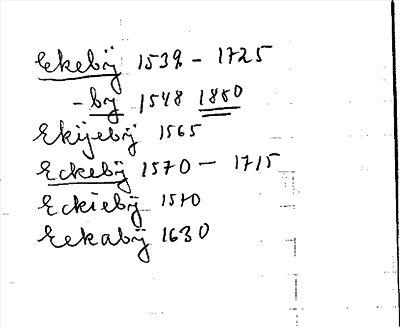 Ekebÿ 1539 - 1725
- by 1548 1880
Ekÿebÿ 1565
Eckebÿ 1570 - 1715
Eckiebÿ 1570
Eekabÿ 1630